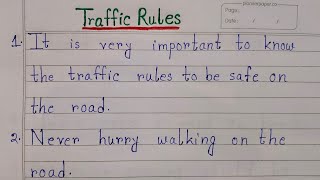 Traffic Rules
Page:
Date: / /
1. It is very important to know
the traffic rules to be safe on
the road.
2. Never hurry walking on the
road.